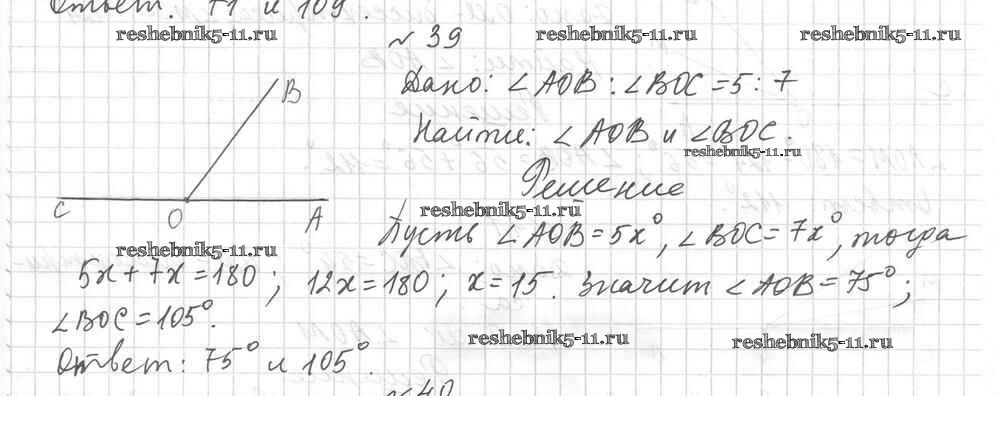 Ответ: 71° и 109°.
reshebnik5-11.ru reshebnik5-11.ru reshebnik5-11.ru
№ 39
B
Дано: ∠AOB : ∠BOC = 5 : 7
Найти: ∠AOB и ∠BOC.
reshebnik5-11.ru
Решение
C O A
reshebnik5-11.ru
Пусть ∠AOB = 5x°, ∠BOC = 7x°, тогда
reshebnik5-11.ru
5x + 7x = 180; 12x = 180; x = 15. Значит ∠AOB = 75°;
∠BOC = 105°.
reshebnik5-11.ru reshebnik5-11.ru
Ответ: 75° и 105°.
№ 40